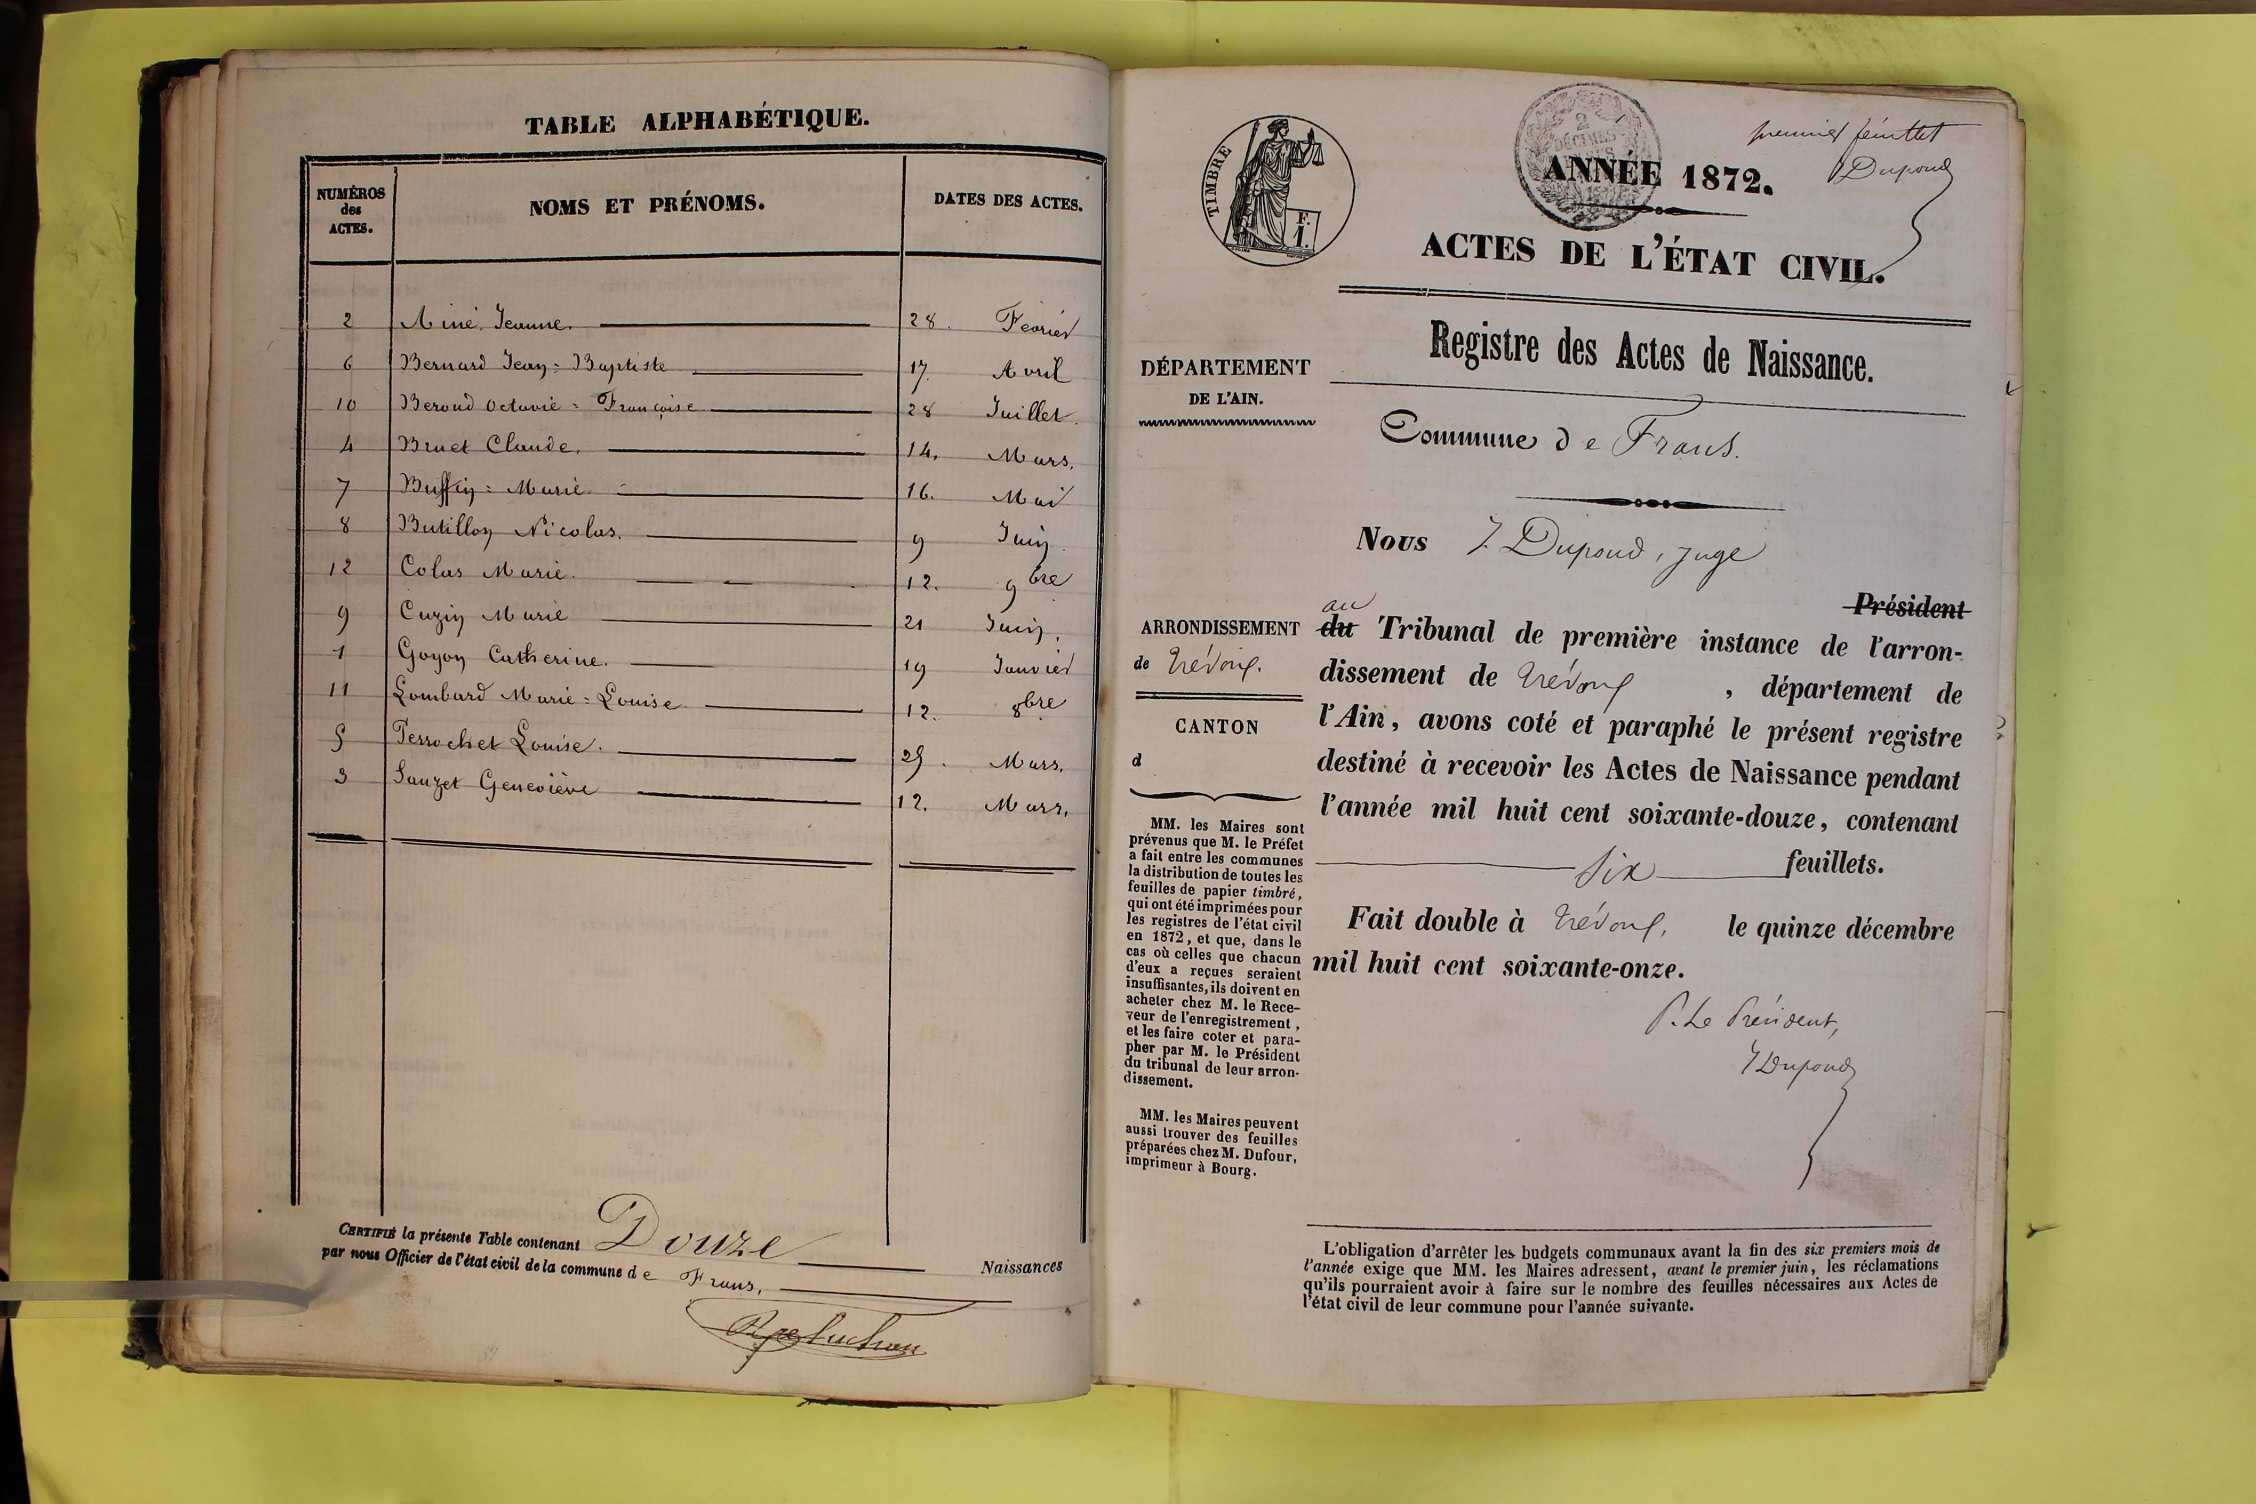 TABLE ALPHABÉTIQUE.
NUMÉROS
des
ACTES.
NOMS ET PRÉNOMS.
DATES DES ACTES.
2 Miné Jeanne. 28. Février
6 Bernard Jean=Baptiste 17. Avril
10 Beroud Octavie=Françoise 28 Juillet.
4 Bruet Claude. 14. Mars.
7 Buffin=Marie. 16. Mai
8 Butillon Nicolas. 9 Juin.
12 Colas Marie. 12. 9bre
9 Cuzin Marie 21 Juin.
1 Goyon Catherine. 19 Janvier
11 Lombard Marie=Louise 12. 8bre
5 Perrochet Louise. 25. Mars.
3 Sauzet Geneviève 12. Mars.
CERTIFIÉ la présente Table contenant Douze Naissances
par nous Officier de l'état civil de la commune de Frans.
TIMBRE
F.
1.
2
DÉCIMES
premier feuillet
Dupond
ANNÉE 1872.
ACTES DE L'ÉTAT CIVIL.
Registre des Actes de Naissance.
DÉPARTEMENT
DE L'AIN.
Commune de Frans.
Nous J. Dupond, juge
Président
au
du Tribunal de première instance de l'arron-
dissement de Trévoux, département de
l'Ain, avons coté et paraphé le présent registre
destiné à recevoir les Actes de Naissance pendant
l'année mil huit cent soixante-douze, contenant
six feuillets.
Fait double à Trévoux, le quinze décembre
mil huit cent soixante-onze.
P. Le Président,
J Dupond
ARRONDISSEMENT
de Trévoux.
CANTON
d
MM. les Maires sont
prévenus que M. le Préfet
a fait entre les communes
la distribution de toutes les
feuilles de papier timbré,
qui ont été imprimées pour
les registres de l'état civil
en 1872, et que, dans le
cas où celles que chacun
d'eux a reçues seraient
insuffisantes, ils doivent en
acheter chez M. le Rece-
veur de l'enregistrement,
et les faire coter et para-
pher par M. le Président
du tribunal de leur arron-
dissement.
MM. les Maires peuvent
aussi trouver des feuilles
préparées chez M. Dufour,
imprimeur à Bourg.
L'obligation d'arrêter les budgets communaux avant la fin des six premiers mois de
l'année exige que MM. les Maires adressent, avant le premier juin, les réclamations
qu'ils pourraient avoir à faire sur le nombre des feuilles nécessaires aux Actes de
l'état civil de leur commune pour l'année suivante.